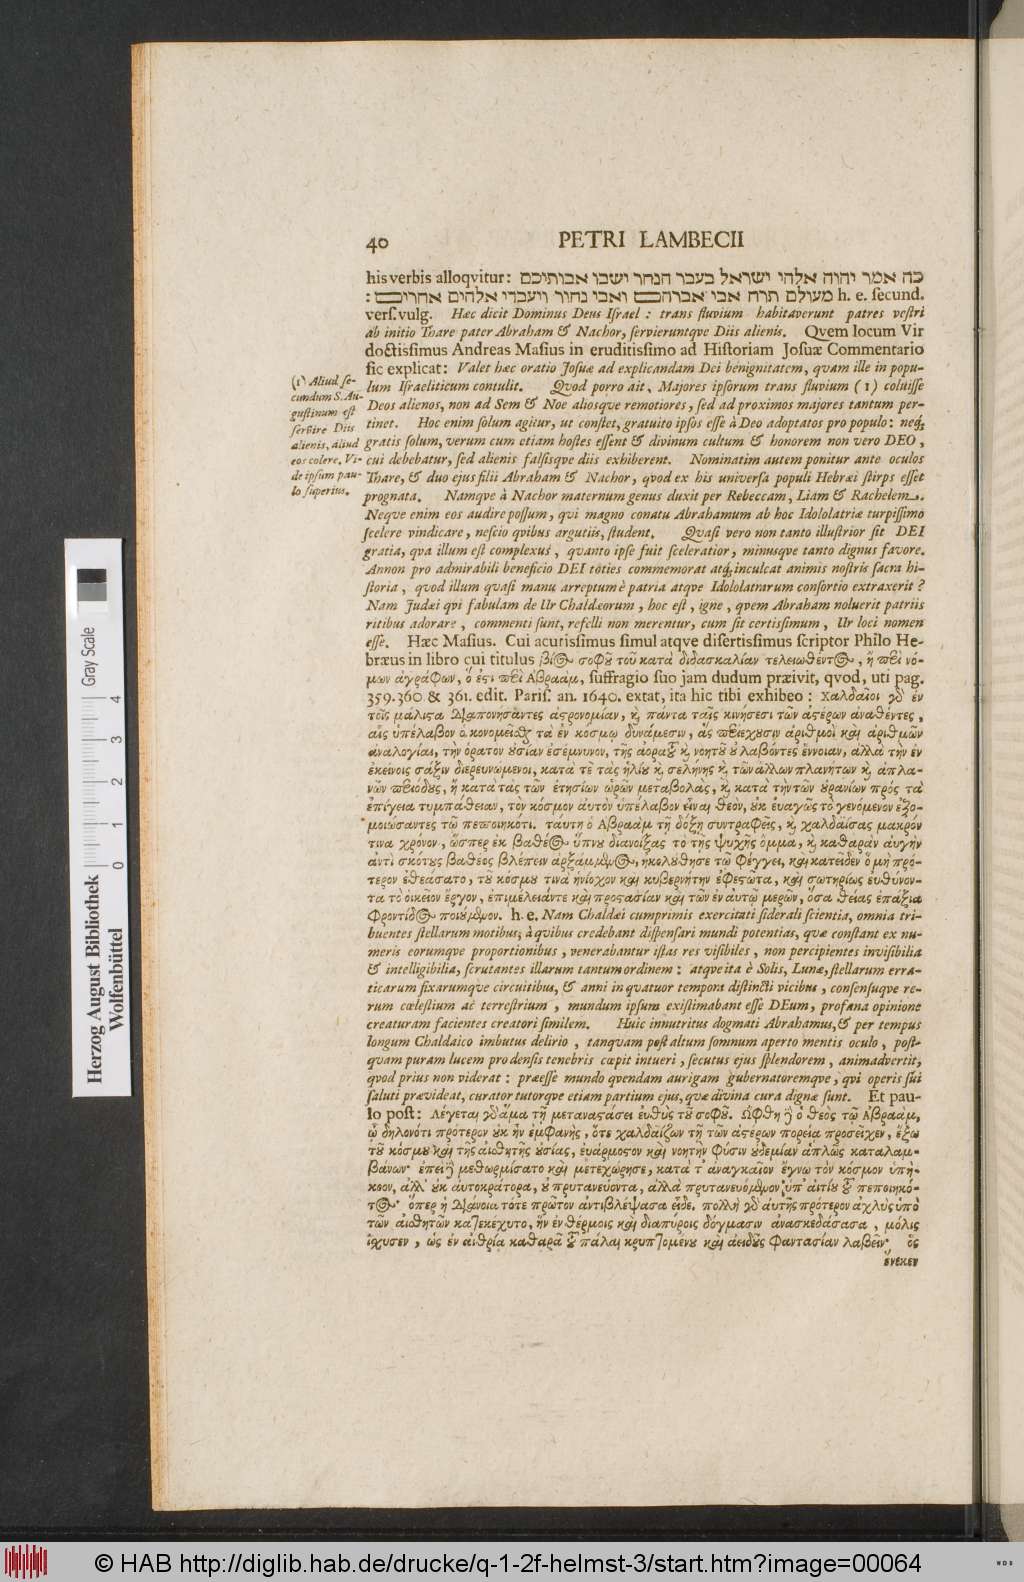 40 PETRI LAMBECII
his verbis alloqvitur: כה אמר יהוה אלהי ישראל בעבר הנהר ישבו אבותיכם
מעולם תרח אבי אברהם ואבי נחור ויעבדי אלהים אחרים: h. e. ſecund.
verſ. vulg. Hæc dicit Dominus Deus Iſrael: trans fluvium habitaverunt patres veſtri
ab initio Thare pater Abraham & Nachor, ſervieruntqve Diis alienis. Qvem locum Vir
doctiſſimus Andreas Maſius in eruditiſſimo ad Hiſtoriam Joſuæ Commentario
ſic explicat: Valet hæc oratio Joſuæ ad explicandam Dei benignitatem, qvam ille in popu-
lum Iſraeliticum contulit. Qvod porro ait, Majores ipſorum trans fluvium (1) coluiſſe
Deos alienos, non ad Sem & Noe aliosqve remotiores, ſed ad proximos majores tantum per-
tinet. Hoc enim ſolum agitur, ut conſtet, gratuito ipſos eſſe à Deo adoptatos pro populo: neq;
gratis ſolum, verum cum etiam hoſtes eſſent & divinum cultum & honorem non vero DEO,
cui debebatur, ſed alienis falſisqve diis exhiberent. Nominatim autem ponitur ante oculos
Thare, & duo ejus filii Abraham & Nachor, qvod ex his univerſa populi Hebræi ſtirps eſſet
prognata. Namqve à Nachor maternum genus duxit per Rebeccam, Liam & Rachelem.
Neqve enim eos audire poſſum, qvi magno conatu Abrahamum ab hoc Idololatriæ turpiſſimo
ſcelere vindicare, neſcio qvibus argutiis, ſtudent. Qvaſi vero non tanto illuſtrior ſit DEI
gratia, qva illum eſt complexus, qvanto ipſe fuit ſceleratior, minusqve tanto dignus favore.
Annon pro admirabili beneficio DEI toties commemorat atq; inculcat animis noſtris ſacra hi-
ſtoria, qvod illum qvaſi manu arreptum è patria atqve Idololatrarum conſortio extraxerit?
Nam Judæi qvi fabulam de Ur Chaldæorum, hoc eſt, igne, qvem Abraham noluerit patriis
ritibus adorare, commenti ſunt, refelli non merentur, cum ſit certiſſimum, Ur loci nomen
eſſe. Hæc Maſius. Cui acutiſſimus ſimul atqve diſertiſſimus ſcriptor Philo He-
bræus in libro cui titulus βίος σοφοῦ τοῦ κατὰ διδασκαλίαν τελειωθέντος, ἢ περὶ νό-
μων ἀγράφων, ὅ ἐστι περὶ Ἀβραάμ, ſuffragio ſuo jam dudum præivit, qvod, uti pag.
359. 360 & 361. edit. Pariſ. an. 1640. extat, ita hic tibi exhibeo: Χαλδαῖοι γὰρ ἐν
τοῖς μάλιστα διαπονήσαντες ἀστρονομίαν, καὶ πάντα ταῖς κινήσεσι τῶν ἀστέρων ἀναθέντες,
αἷς ὑπέλαβον οἰκονομεῖσθαι τὰ ἐν κόσμῳ δυνάμεσιν, ἃς περιέχουσιν ἀριθμοὶ καὶ ἀριθμῶν
ἀναλογίαι, τὴν ὁρατὸν οὐσίαν ἐσέμνυνον, τῆς ἀοράτου καὶ νοητοῦ οὐ λαβόντες ἔννοιαν, ἀλλὰ τὴν ἐν
ἐκείνοις τάξιν διερευνώμενοι, κατὰ τὲ τὰς ἡλίου καὶ σελήνης καὶ τῶν ἄλλων πλανήτων καὶ ἀπλα-
νῶν περιόδους, ἢ κατὰ τὰς τῶν ἐτησίων ὡρῶν μεταβολὰς, καὶ κατὰ τὴν τῶν οὐρανίων πρὸς τὰ
ἐπίγεια συμπάθειαν, τὸν κόσμον αὐτὸν ὑπέλαβον εἶναι θεὸν, οὐκ εὐαγῶς τὸ γενόμενον ἐξο-
μοιώσαντες τῷ πεποιηκότι. ταύτῃ ὁ Ἀβραὰμ τῇ δόξῃ συντραφεὶς, καὶ χαλδαΐσας μακρόν
τινα χρόνον, ὥσπερ ἐκ βαθέος ὕπνου διανοίξας τὸ τῆς ψυχῆς ὄμμα, καὶ καθαρὰν αὐγὴν
ἀντὶ σκότους βαθέος βλέπειν ἀρξάμενος, ἠκολούθησε τῷ φέγγει, καὶ κατεῖδεν ὃ μὴ πρό-
τερον ἐθεάσατο, τοῦ κόσμου τινὰ ἡνίοχον καὶ κυβερνήτην ἐφεστῶτα, καὶ σωτηρίως εὐθύνον-
τα τὸ οἰκεῖον ἔργον, ἐπιμέλειάν τε καὶ προστασίαν καὶ τῶν ἐν αὐτῷ μερῶν, ὅσα θείας ἐπάξια
φροντίδος ποιούμενον. h. e. Nam Chaldæi cumprimis exercitati ſiderali ſcientia, omnia tri-
buentes ſtellarum motibus; à qvibus credebant diſpenſari mundi potentias, qvæ conſtant ex nu-
meris eorumqve proportionibus, venerabantur iſtas res viſibiles, non percipientes inviſibilia
& intelligibilia, ſcrutantes illarum tantum ordinem: atqve ita è Solis, Lunæ, ſtellarum erra-
ticarum fixarumqve circuitibus, & anni in qvatuor tempora diſtincti vicibus, conſenſuqve re-
rum cœleſtium ac terreſtrium, mundum ipſum exiſtimabant eſſe DEum, profana opinione
creaturam facientes creatori ſimilem. Huic innutritus dogmati Abrahamus, & per tempus
longum Chaldaico imbutus delirio, tanquam poſt altum ſomnum aperto mentis oculo, poſt-
qvam puram lucem pro denſis tenebris cœpit intueri, ſecutus ejus ſplendorem, animadvertit,
qvod prius non viderat: præeſſe mundo qvendam aurigam gubernatoremqve, qvi operis ſui
ſaluti prævideat, curator tutorqve etiam partium ejus, qvæ divina cura dignæ ſunt. Et pau-
lo poſt: Λέγεται γὰρ ἅμα τῇ μεταναστάσει εὐθὺς τοῦ σοφοῦ. Ὤφθη δὲ ὁ θεὸς τῷ Ἀβραάμ,
ᾧ δηλονότι πρότερον οὐκ ἦν ἐμφανὴς, ὅτε χαλδαΐζων τῇ τῶν ἀστέρων πορείᾳ προσεῖχεν, ἔξω
τοῦ κόσμου καὶ τῆς αἰσθητῆς οὐσίας, εὐάρμοστον καὶ νοητὴν φύσιν οὐδεμίαν ἁπλῶς καταλαμ-
βάνων· ἐπεὶ δὲ μεθωρμίσατο καὶ μετεχώρησε, κατὰ τὸ ἀναγκαῖον ἔγνω τὸν κόσμον ὑπή-
κοον, ἀλλ' οὐκ αὐτοκράτορα, οὐ πρυτανεύοντα, ἀλλὰ πρυτανευόμενον ὑπ' αἰτίου τοῦ πεποιηκό-
τος· ὅπερ ἡ διάνοια τότε πρῶτον ἀντιβλέψασα εἶδε. πολλὴ γὰρ αὐτῆς πρότερον ἀχλὺς ὑπὸ
τῶν αἰσθητῶν κατεκέχυτο, ἣν ἐνθέρμοις καὶ διαπύροις δόγμασιν ἀνασκεδάσασα, μόλις
ἴσχυσεν, ὡς ἐν αἰθρίᾳ καθαρᾷ τοῦ πάλαι κρυπτομένου καὶ ἀειδοῦς φαντασίαν λαβεῖν· ὃς
ἕνεκεν
(1) Aliud ſe-
cundum S. Au-
guſtinum eſt
ſervire Diis
alienis, aliud
eos colere. Vi-
de ipſum pau-
lo ſuperius.
Herzog August Bibliothek
Wolfenbüttel
Gray Scale
0 1 2 3 4
© HAB http://diglib.hab.de/drucke/q-1-2f-helmst-3/start.htm?image=00064